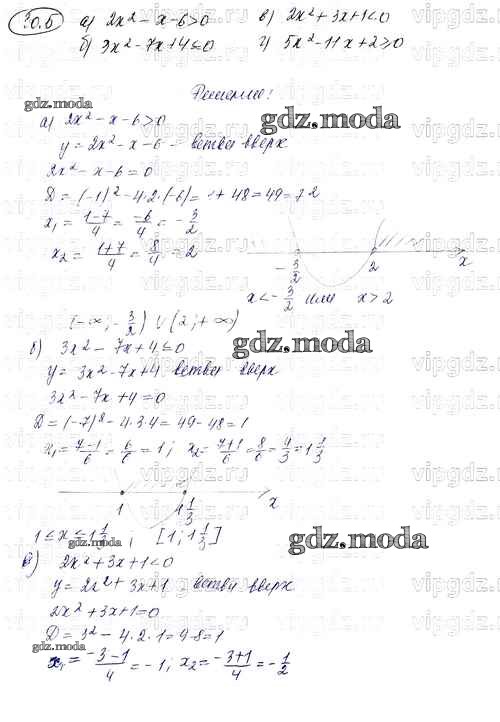 30.5 а) 2x² - x - 6 > 0 в) 2x² + 3x + 1 < 0
б) 3x² - 7x + 4 ≤ 0 г) 5x² - 11x + 2 ≥ 0
Решение:
gdz.moda
gdz.moda
а) 2x² - x - 6 > 0
y = 2x² - x - 6 - ветви вверх
2x² - x - 6 = 0
D = (-1)² - 4·2·(-6) = 1 + 48 = 49 = 7²
x₁ = (1-7)/4 = -6/4 = -3/2
x₂ = (1+7)/4 = 8/4 = 2
-3/2 2 x
x < -3/2 или x > 2
(-∞; -3/2) ∪ (2; +∞)
gdz.moda
б) 3x² - 7x + 4 ≤ 0
y = 3x² - 7x + 4 ветви вверх
3x² - 7x + 4 = 0
D = (-7)² - 4·3·4 = 49 - 48 = 1
x₁ = (7-1)/6 = 6/6 = 1; x₂ = (7+1)/6 = 8/6 = 4/3 = 1 1/3
1 1 1/3 x
1 ≤ x ≤ 1 1/3, [1; 1 1/3]
gdz.moda
gdz.moda
в) 2x² + 3x + 1 < 0
y = 2x² + 3x + 1 - ветви вверх
2x² + 3x + 1 = 0
D = 3² - 4·2·1 = 9 - 8 = 1
gdz.moda
x₁ = (-3-1)/4 = -1; x₂ = (-3+1)/4 = -1/2